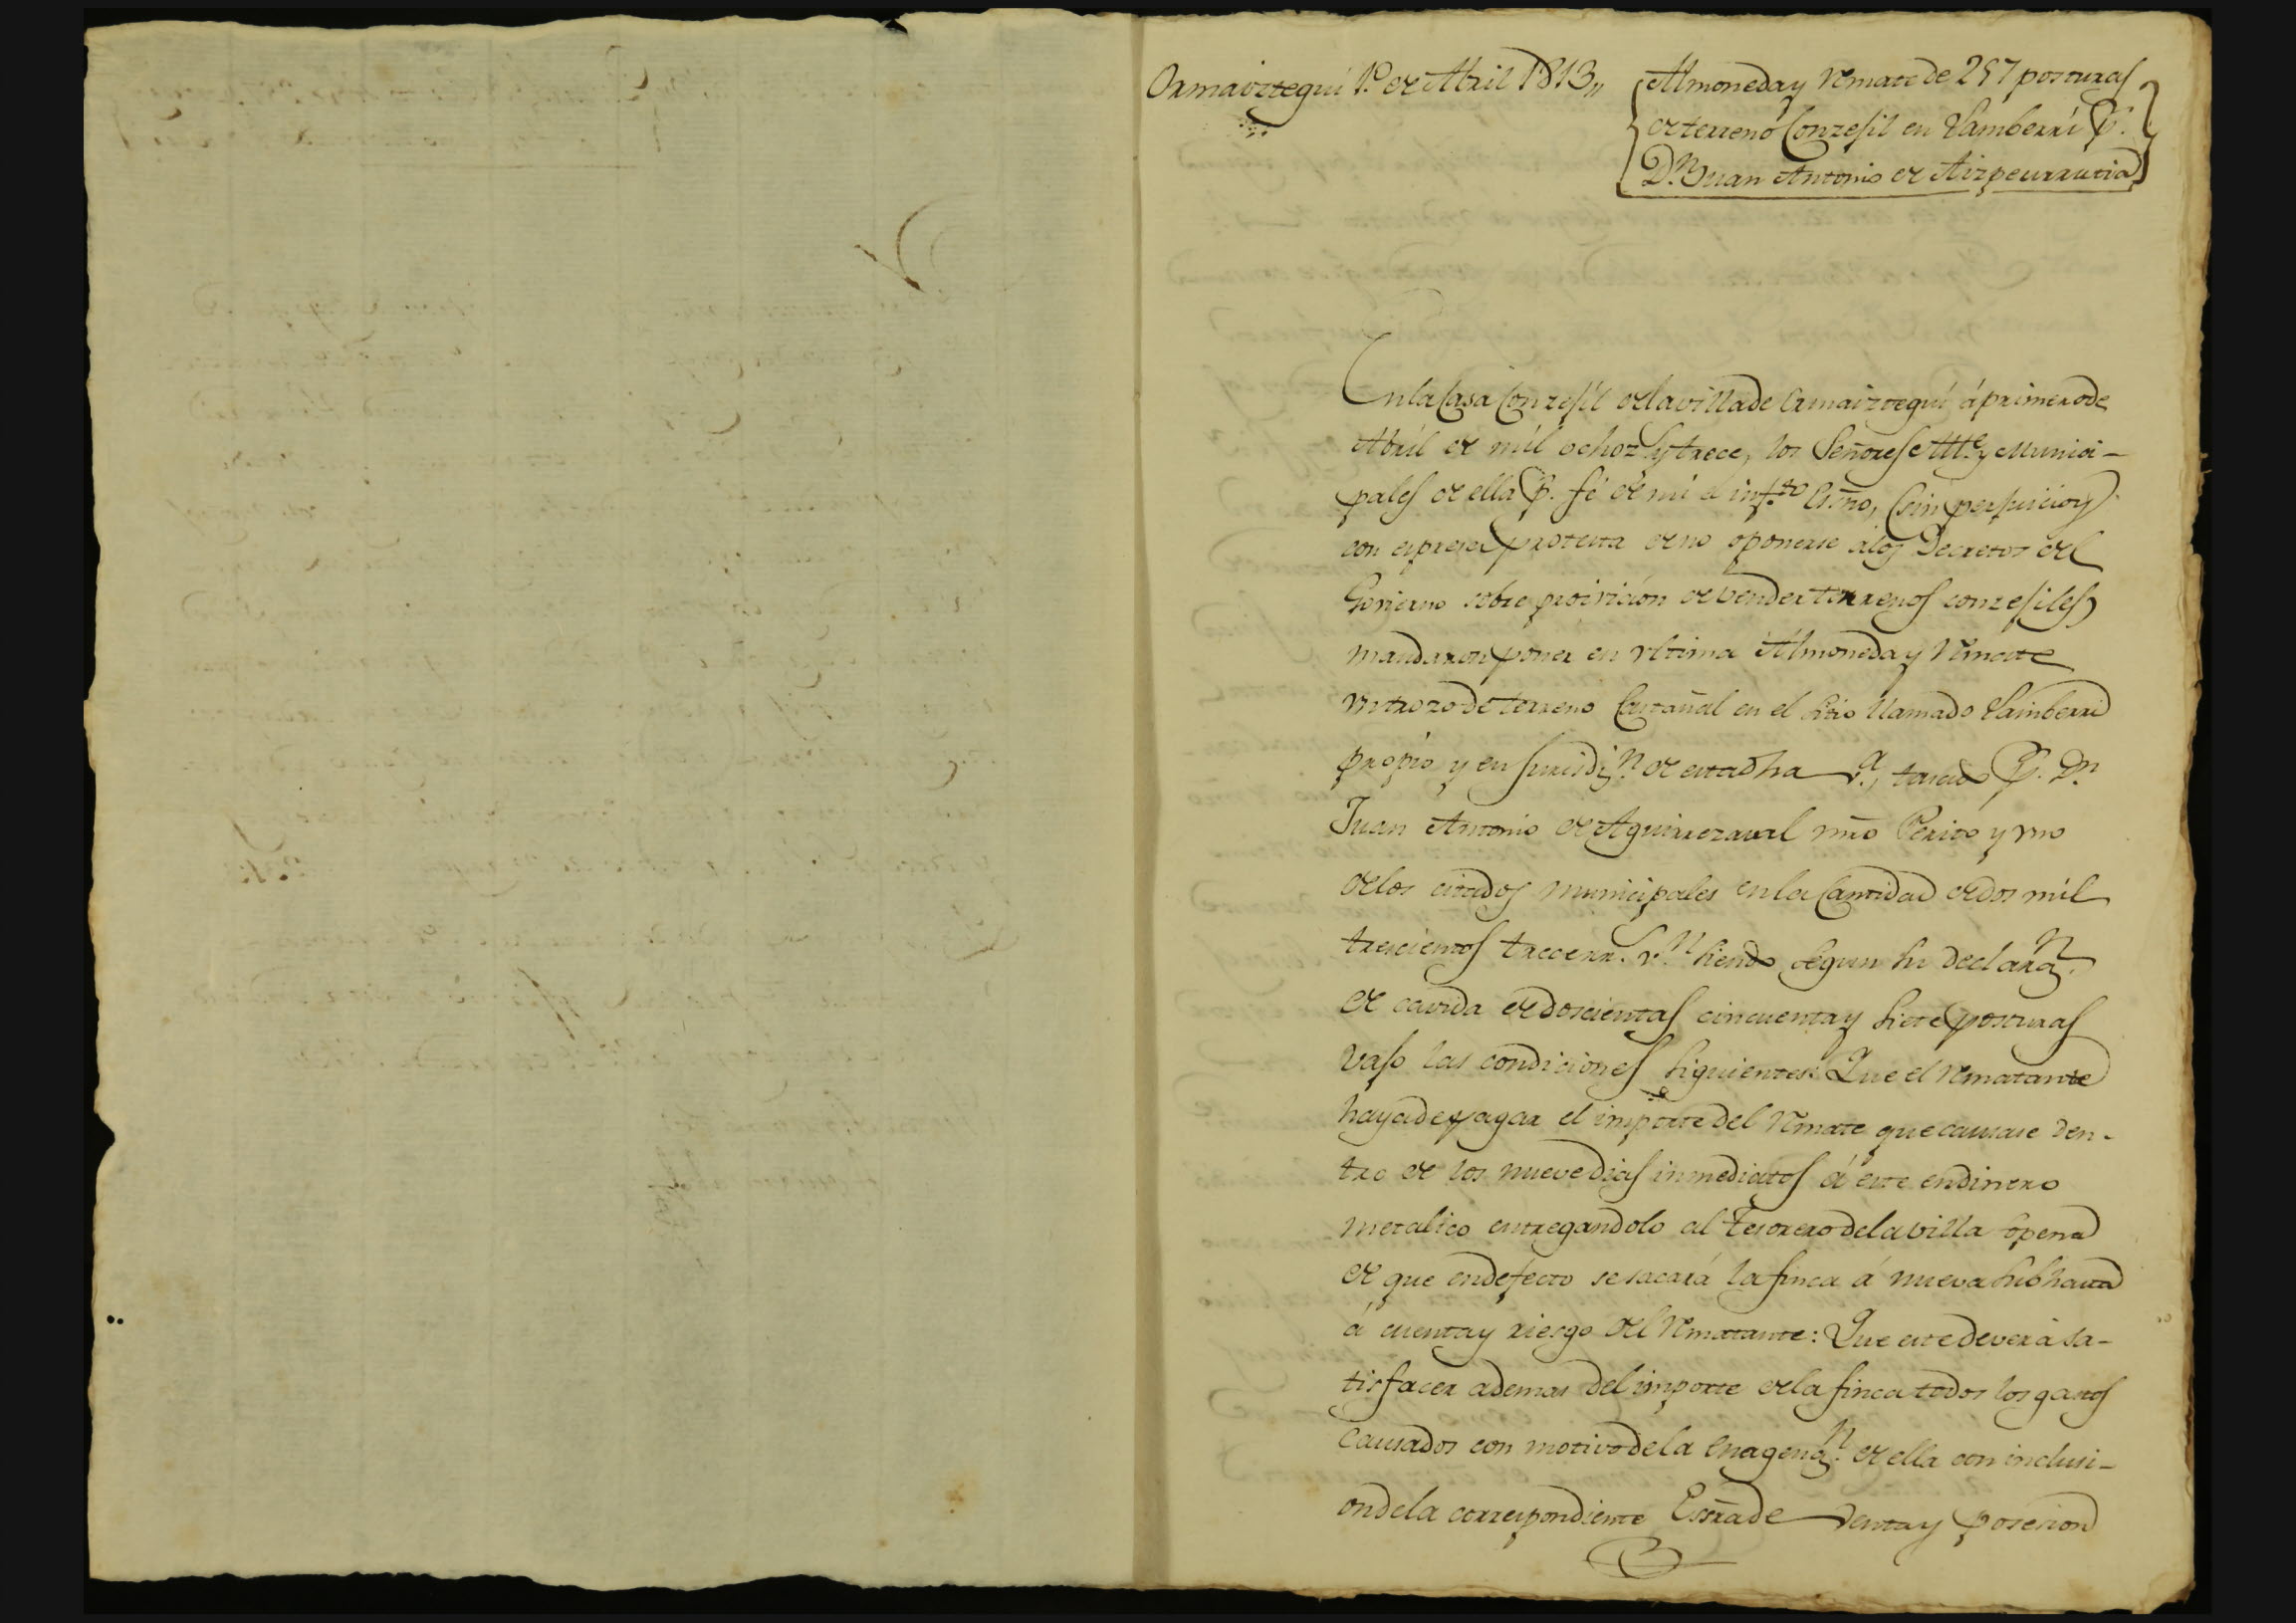 Ormaiztegui 1.º de Abril 1813,,
Almoneda y remate de 257 posturas
de terreno Conzejil en Lamberri P.
D.n Juan Antonio de Aizpeurrutia
En la Casa Conzejil de la villa de Ormaiztegui á primero de
Abril de mil ochoz.s y trece, los Señores Alc.e y Munici-
pales de ella P. fé de mi el inf.to Es.no, (sin perjuicio y
con expresa protexta de no oponerse a los Decretos del
Govierno sobre proivición de vender terrenos conzejiles)
mandaron poner en vltima Almoneda y remate
vn trozo de terreno Castañal en el sitio llamado Lamberri
propio y en Jurisdi.n de esta dha v.a, tasado P. D.n
Juan Antonio de Aguirrezaval nr̃o Perito y vno
de los citados municipales en la Cantidad de dos mil
trescientos trece rr.s v.n siendo segun su declara.n
de cavida de doscientas cincuenta y siete posturas
vajo las condiciones siguientes: Que el rematante
haya de pagar el importe del remate que causare den-
tro de los nueve dias inmediatos á este en dinero
metalico entregandolo al Tesorero de la villa só pena
de que en defecto se sacará la finca á nueva subhasta
á cuenta y riesgo del rematante: Que este deverá sa-
tisfacer ademas del importe de la finca todos los gastos
causados con motivo de la enagena.n de ella con inclusi-
on de la correspondiente Essra de venta y posesion